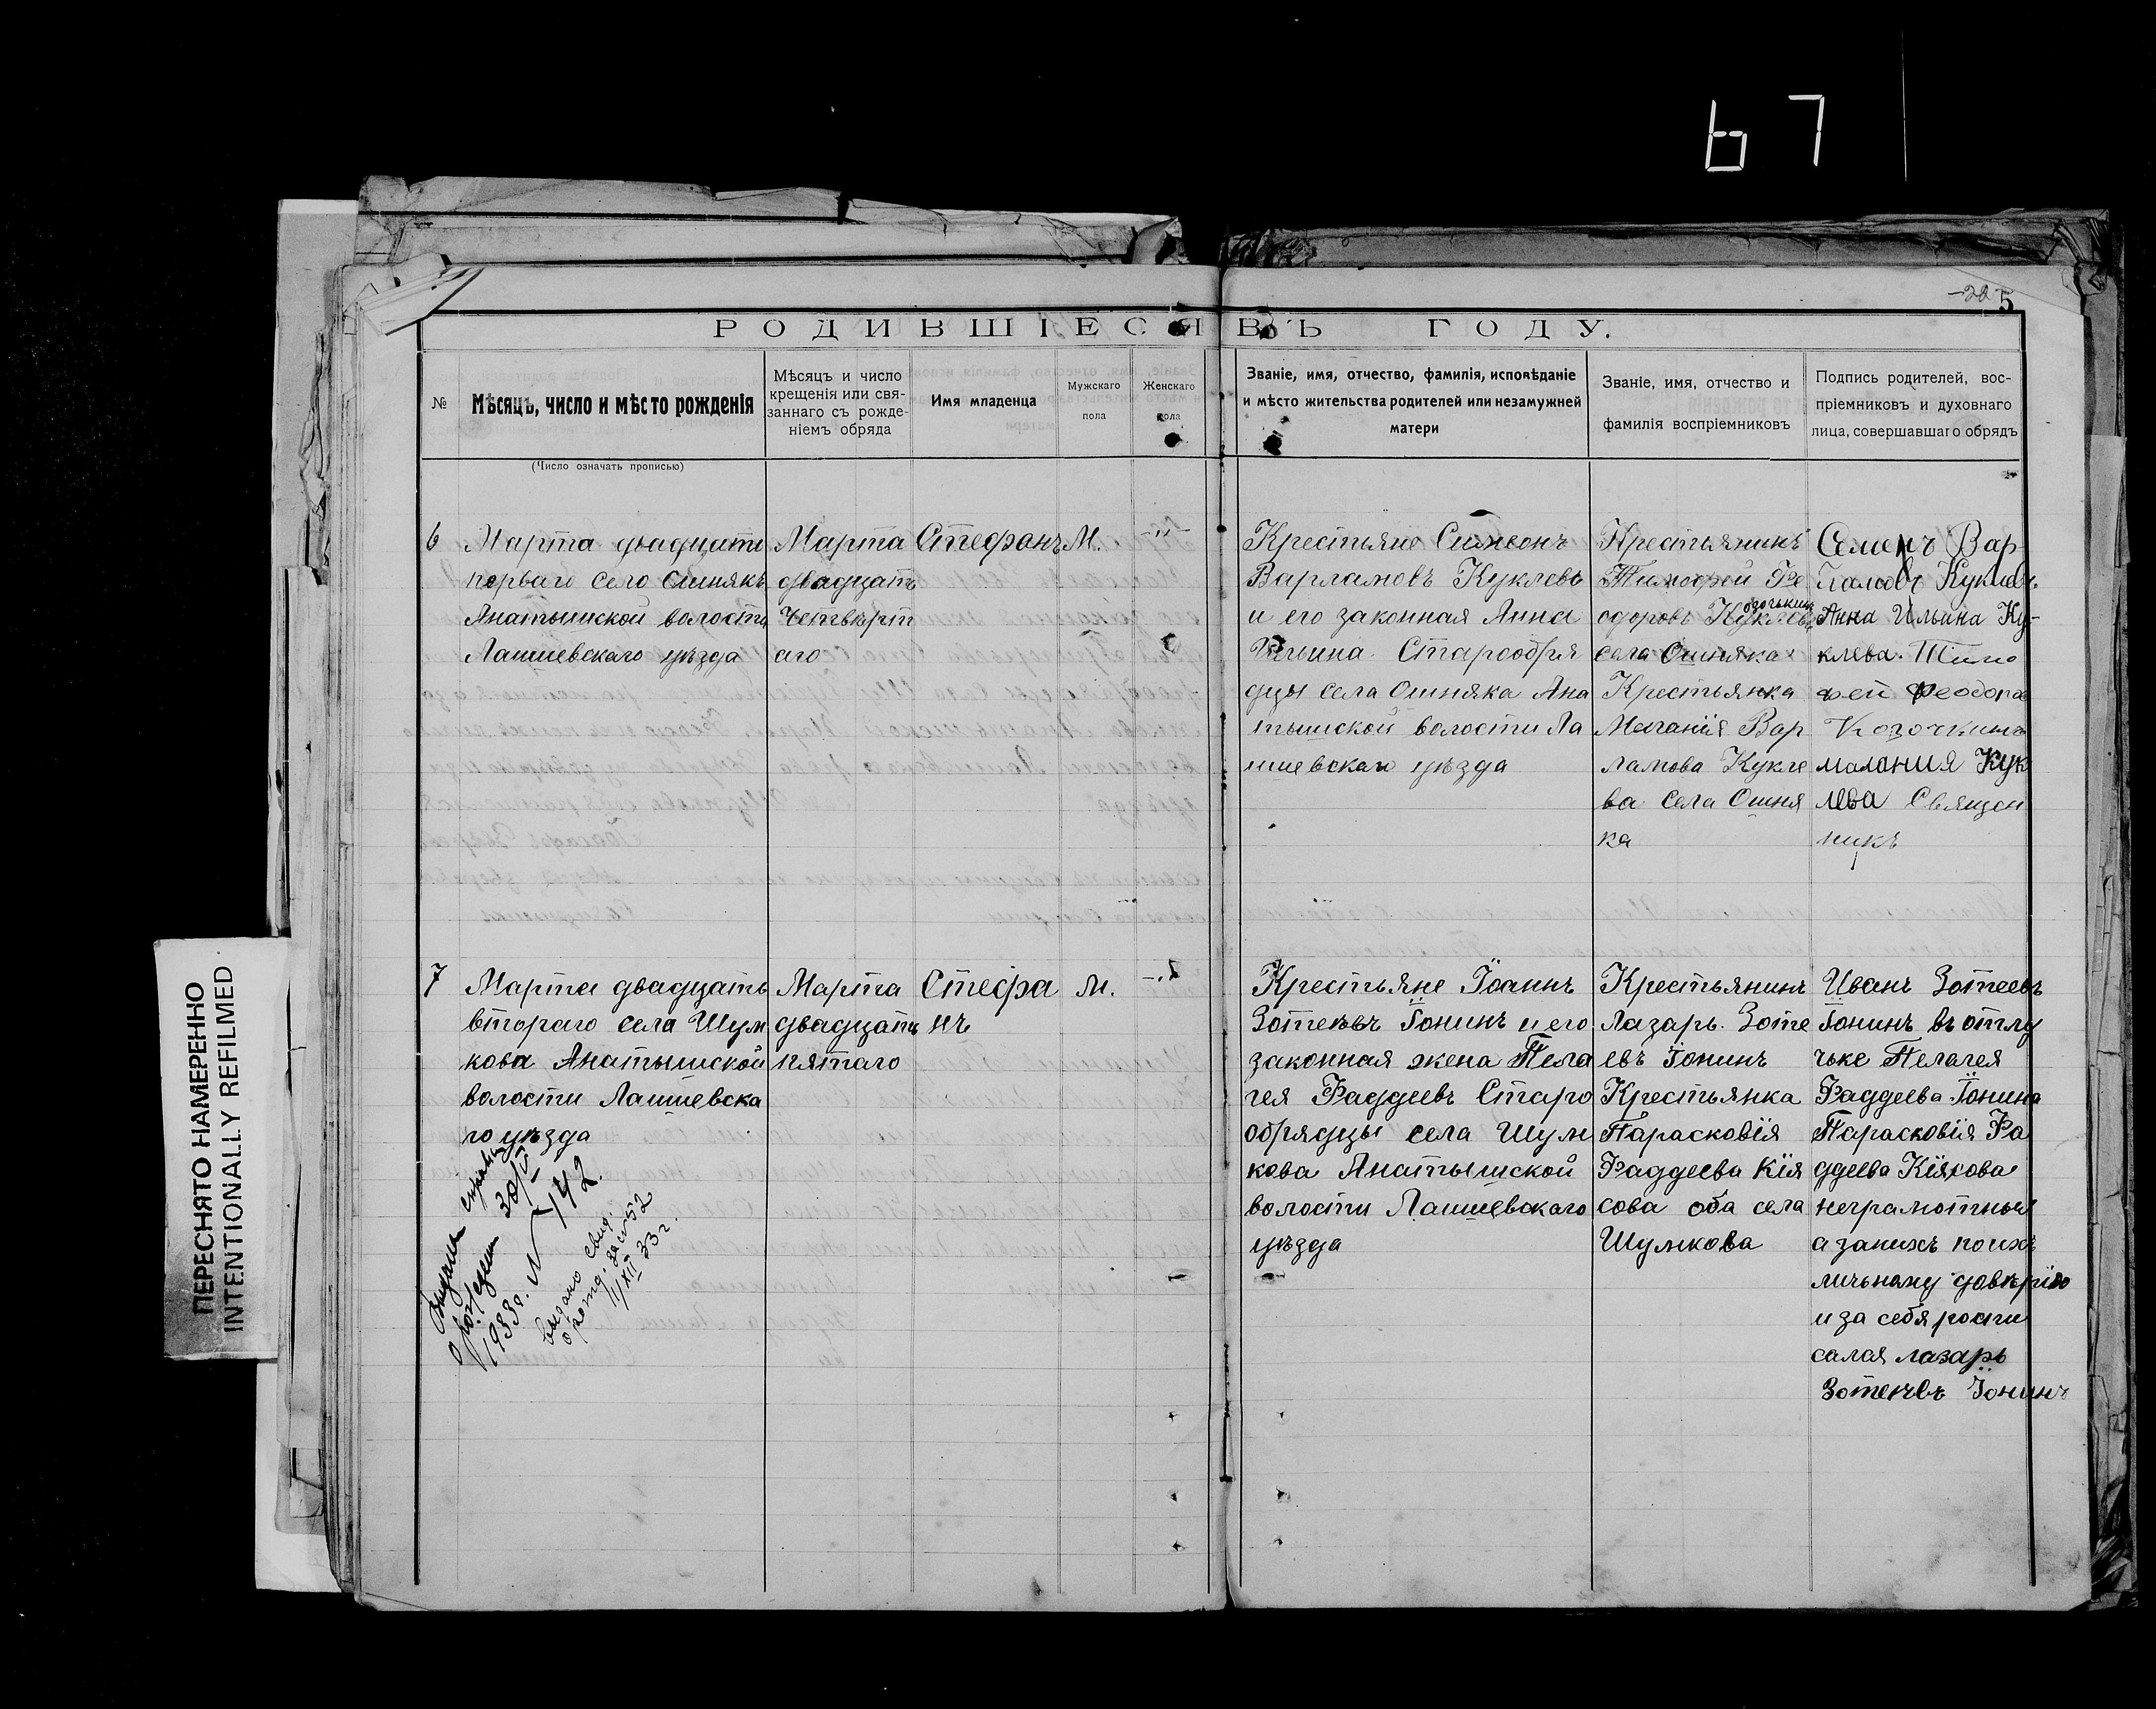 67
ПЕРЕСНЯТО НАМЕРЕННО
INTENTIONALLY REFILMED
-22-
5
РОДИВШІЕСЯ ВЪ ГОДУ.
№
Мѣсяцъ, число и мѣсто рожденія
(Число означать прописью)
Мѣсяцъ и число
крещенія или свя-
заннаго съ рожде-
ніемъ обряда
Имя младенца
Мужскаго
пола
Женскаго
пола
Званіе, имя, отчество, фамилія, исповѣданіе
и мѣсто жительства родителей или незамужней
матери
Званіе, имя, отчество и
фамилія воспріемниковъ
Подпись родителей, вос-
пріемниковъ и духовнаго
лица, совершавшаго обрядъ
6
Марта двадцать
перваго село Ошнякъ
Анатышской волости
Лаишевскаго уѣзда
Марта
двадцать
четвѣрт
аго
Стефанъ
М.
-"-
Крестьяне Симеонъ
Варламовъ Куклевъ
и его законная Анна
Ильина Старообря
дцы села Ошняка Ана
тышской волости Ла
ишевскаго уѣзда
Крестьянинъ
Тимофей Фе
одоровъ Куклевъ
озочькинъ
села Ошняка
Крестьянка
Меланія Вар
ламова Кукле
ва села Ошня
ка
Семенъ Вар
ламовъ Куклевъ
Анна Ильина Ку-
клева. Тимо
фей Феодоров
Козочкинъ
малания Кук
лева Священ
никъ
7
Марта двадцать
втораго села Шум
кова Анатышской
волости Лаишевска
го уѣзда
Марта
двадцать
пятаго
Стефа
нъ
м.
-"-
Крестьяне Іоаннъ
Зотеѣвъ Іонинъ и его
законная жена Пела
гея Фаддеевъ Старо
обрядцы села Шум
кова Анатышской
волости Лаишевскаго
уѣзда
Крестьянинъ
Лазарь Зоте
евъ Іонинъ
Крестьянка
Парасковія
Фаддеева Кія
сова оба села
Шумкова
Иванъ Зотеевъ
Іонинъ въ отлу
чьке Пелагея
Фаддеева Іонина
Парасковія Фа
ддеева Кіясова
неграмотныи
а занихъ поихъ
личьному довѣрію
и за себя роспи
салса лазарь
Зотеѣвъ Іонинъ
Выдана справка
о рожден 30/V
1933г. N 142.
выдано свид.
о рожд. за N 52
11/XII 33 г.